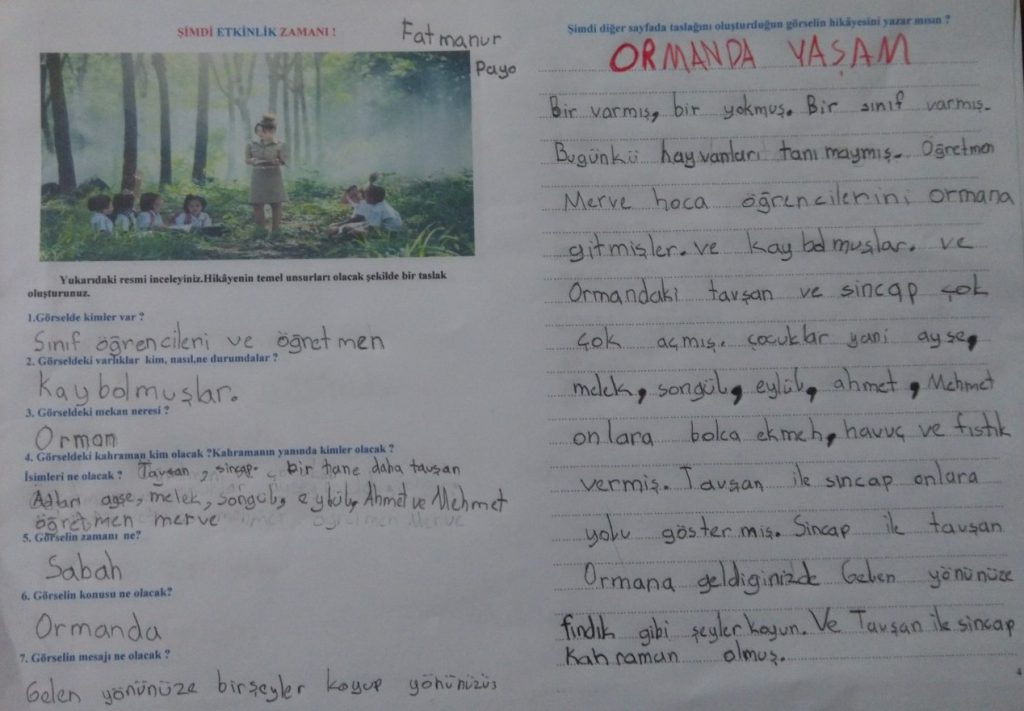 ŞİMDİ ETKİNLİK ZAMANI !
Fatmanur
Payo
Yukarıdaki resmi inceleyiniz.Hikâyenin temel unsurları olacak şekilde bir taslak
oluşturunuz.
1.Görselde kimler var ?
Sınıf öğrencileni ve öğretmen
2. Görseldeki varlıklar kim, nasıl,ne durumdalar ?
Kaybolmuşlar.
3. Görseldeki mekan neresi ?
Orman
4. Görseldeki kahraman kim olacak ?Kahramanın yanında kimler olacak ?
İsimleri ne olacak ? Tavşan, sincap. bir tane daha tavşan
Adları ayşe, melek, songül, eylül, Ahmet ve Mehmet
öğretmen merve
5. Görselin zamanı ne?
Sabah
6. Görselin konusu ne olacak?
Ormanda
7. Görselin mesajı ne olacak ?
Gelen yönünüze birşeyler koyup
Şimdi diğer sayfada taslağını oluşturduğun görselin hikâyesini yazar mısın ?
ORMANDA YAŞAM
Bir varmış, bir yokmuş. Bir sınıf varmış.
Bugünkü hayvanları tanımaymış. Öğretmen
Merve hoca öğrencilenini ormana
gitmişler. ve kaybolmuşlar. ve
Ormandaki tavşan ve sincap çok
çok açmış. çocuklar yani ayşe,
melek, songül, eylül, ahmet, Mehmet
onlara bolca ekmeh, havuç ve fıstık
vermiş. Tavşan ile sincap onlara
yolu göstermiş. Sincap ile tavşan
Ormana geldiginizde Gelen yönünüze
fındık gibi şeyler koyun. Ve Tavşan ile sincap
Kahraman olmuş.
4